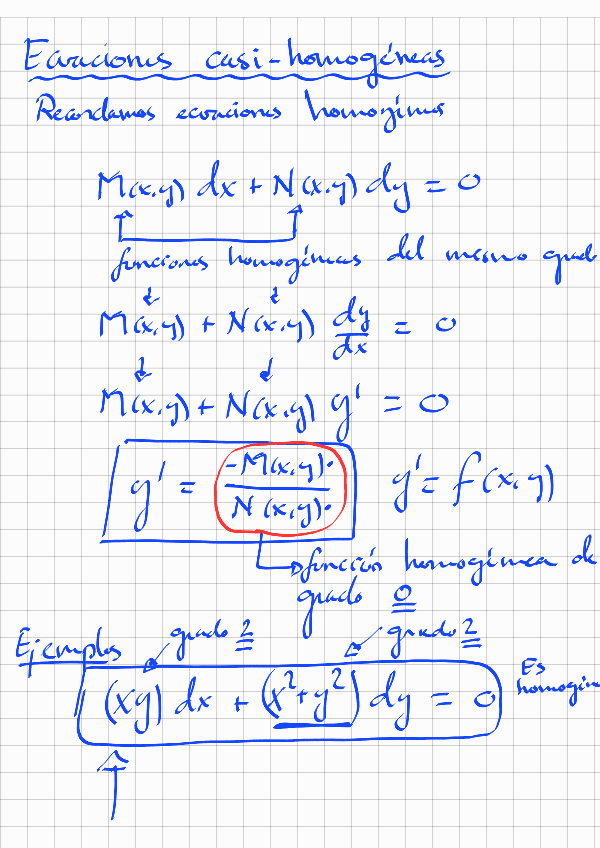 Ecuaciones casi-homogéneas
Recordamos ecuaciones homogéneas
M(x,y) dx + N(x,y) dy = 0
funciones homogéneas del mismo grado
M(x,y) + N(x,y) dy/dx = 0
M(x,y) + N(x,y) y' = 0
y' = -M(x,y) / N(x,y) y' = f(x,y)
función homogénea de
grado 0
Ejemplos grado 2 grado 2
(xy) dx + (x²+y²) dy = 0
Es
homogénea